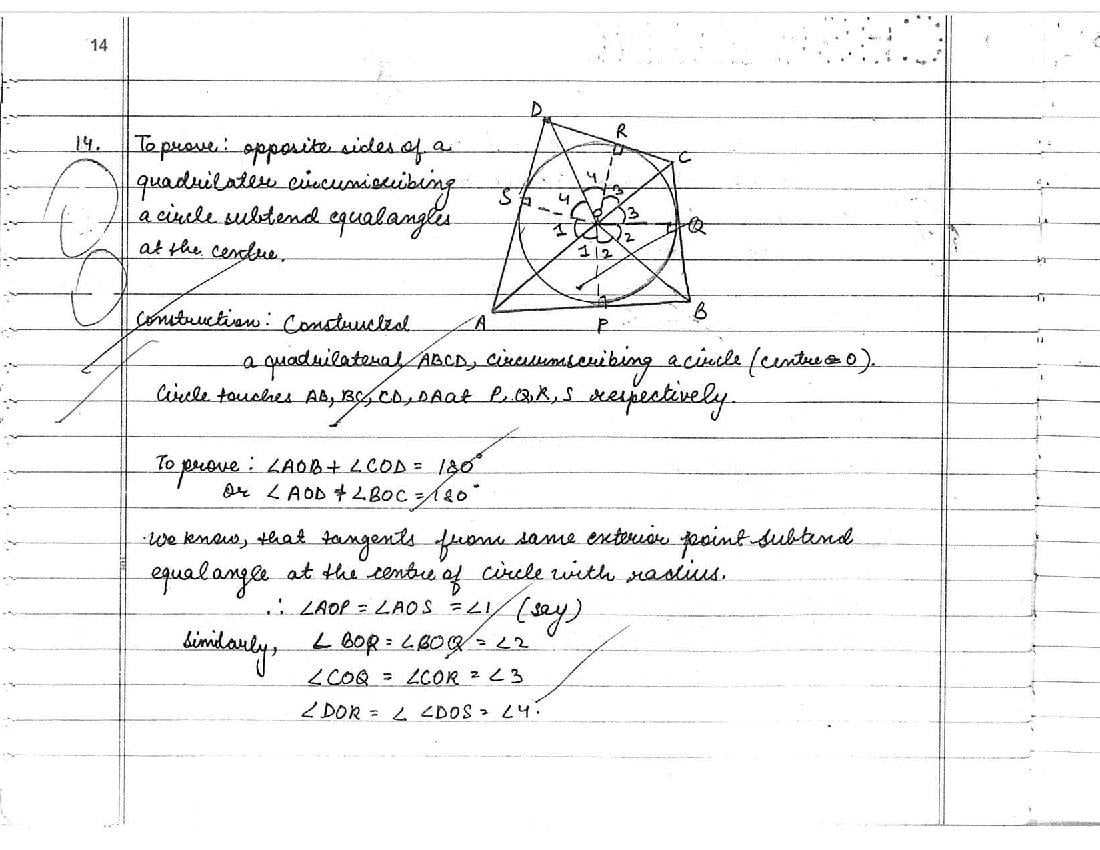 14
14.
To prove: opposite sides of a
quadrilater circumscribing
a circle subtend equal angles
at the centre.
D
R
C
S
4
4
3
3
O
Q
1
2
1
2
A
P
B
Construction: Constructed
a quadrilateral ABCD, circumscribing a circle (centre = O).
Circle touches AB, BC, CD, DA at P, Q, R, S respectively.
To prove: ∠AOB + ∠COD = 180°
Or ∠AOD + ∠BOC = 180°
We know, that tangents from same exterior point subtend
equal angle at the centre of circle with radius.
∴ ∠AOP = ∠AOS = ∠1 (say)
Similarly, ∠BOP = ∠BOQ = ∠2
∠COQ = ∠COR = ∠3
∠DOR = ∠ ∠DOS = ∠4.